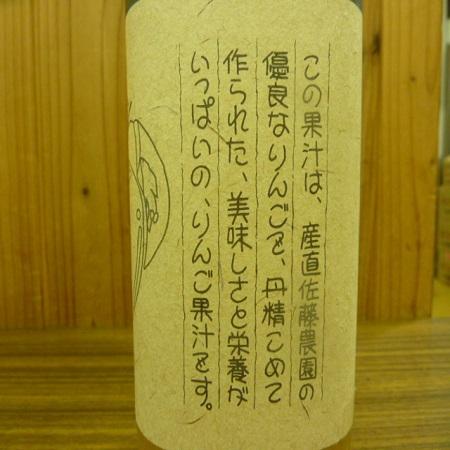 この果汁は、産直佐藤農園の
優良なりんごを、丹精こめて
作られた、美味しさと栄養が
いっぱいの、りんご果汁です。